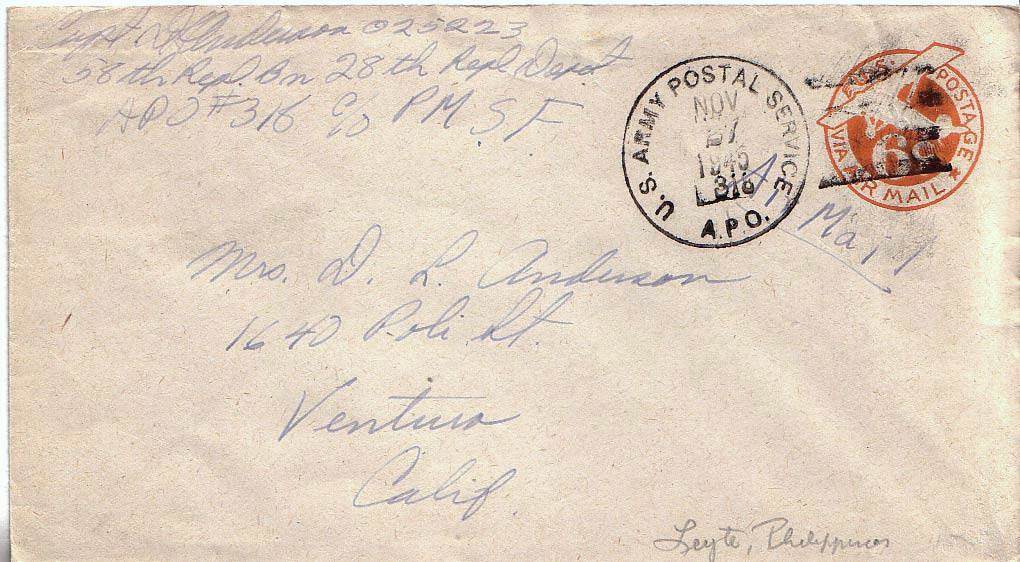 Capt D L Anderson 025223
58th Repl. Bn 28th Repl Depot
APO #316 c/o PM S F
U.S. ARMY POSTAL SERVICE
NOV
27
1945
316
A.P.O.
U.S. POSTAGE
6¢
VIA AIR MAIL
Air Mail
Mrs. D. L. Anderson
1640 Poli St.
Ventura
Calif.
Leyte, Philippines